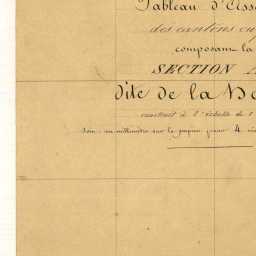 Tableau d'Asse
des cantons ou
composant la
SECTION
dite de la
construit à l'échelle de 1
Soit: un millimètre sur le papier pour 4